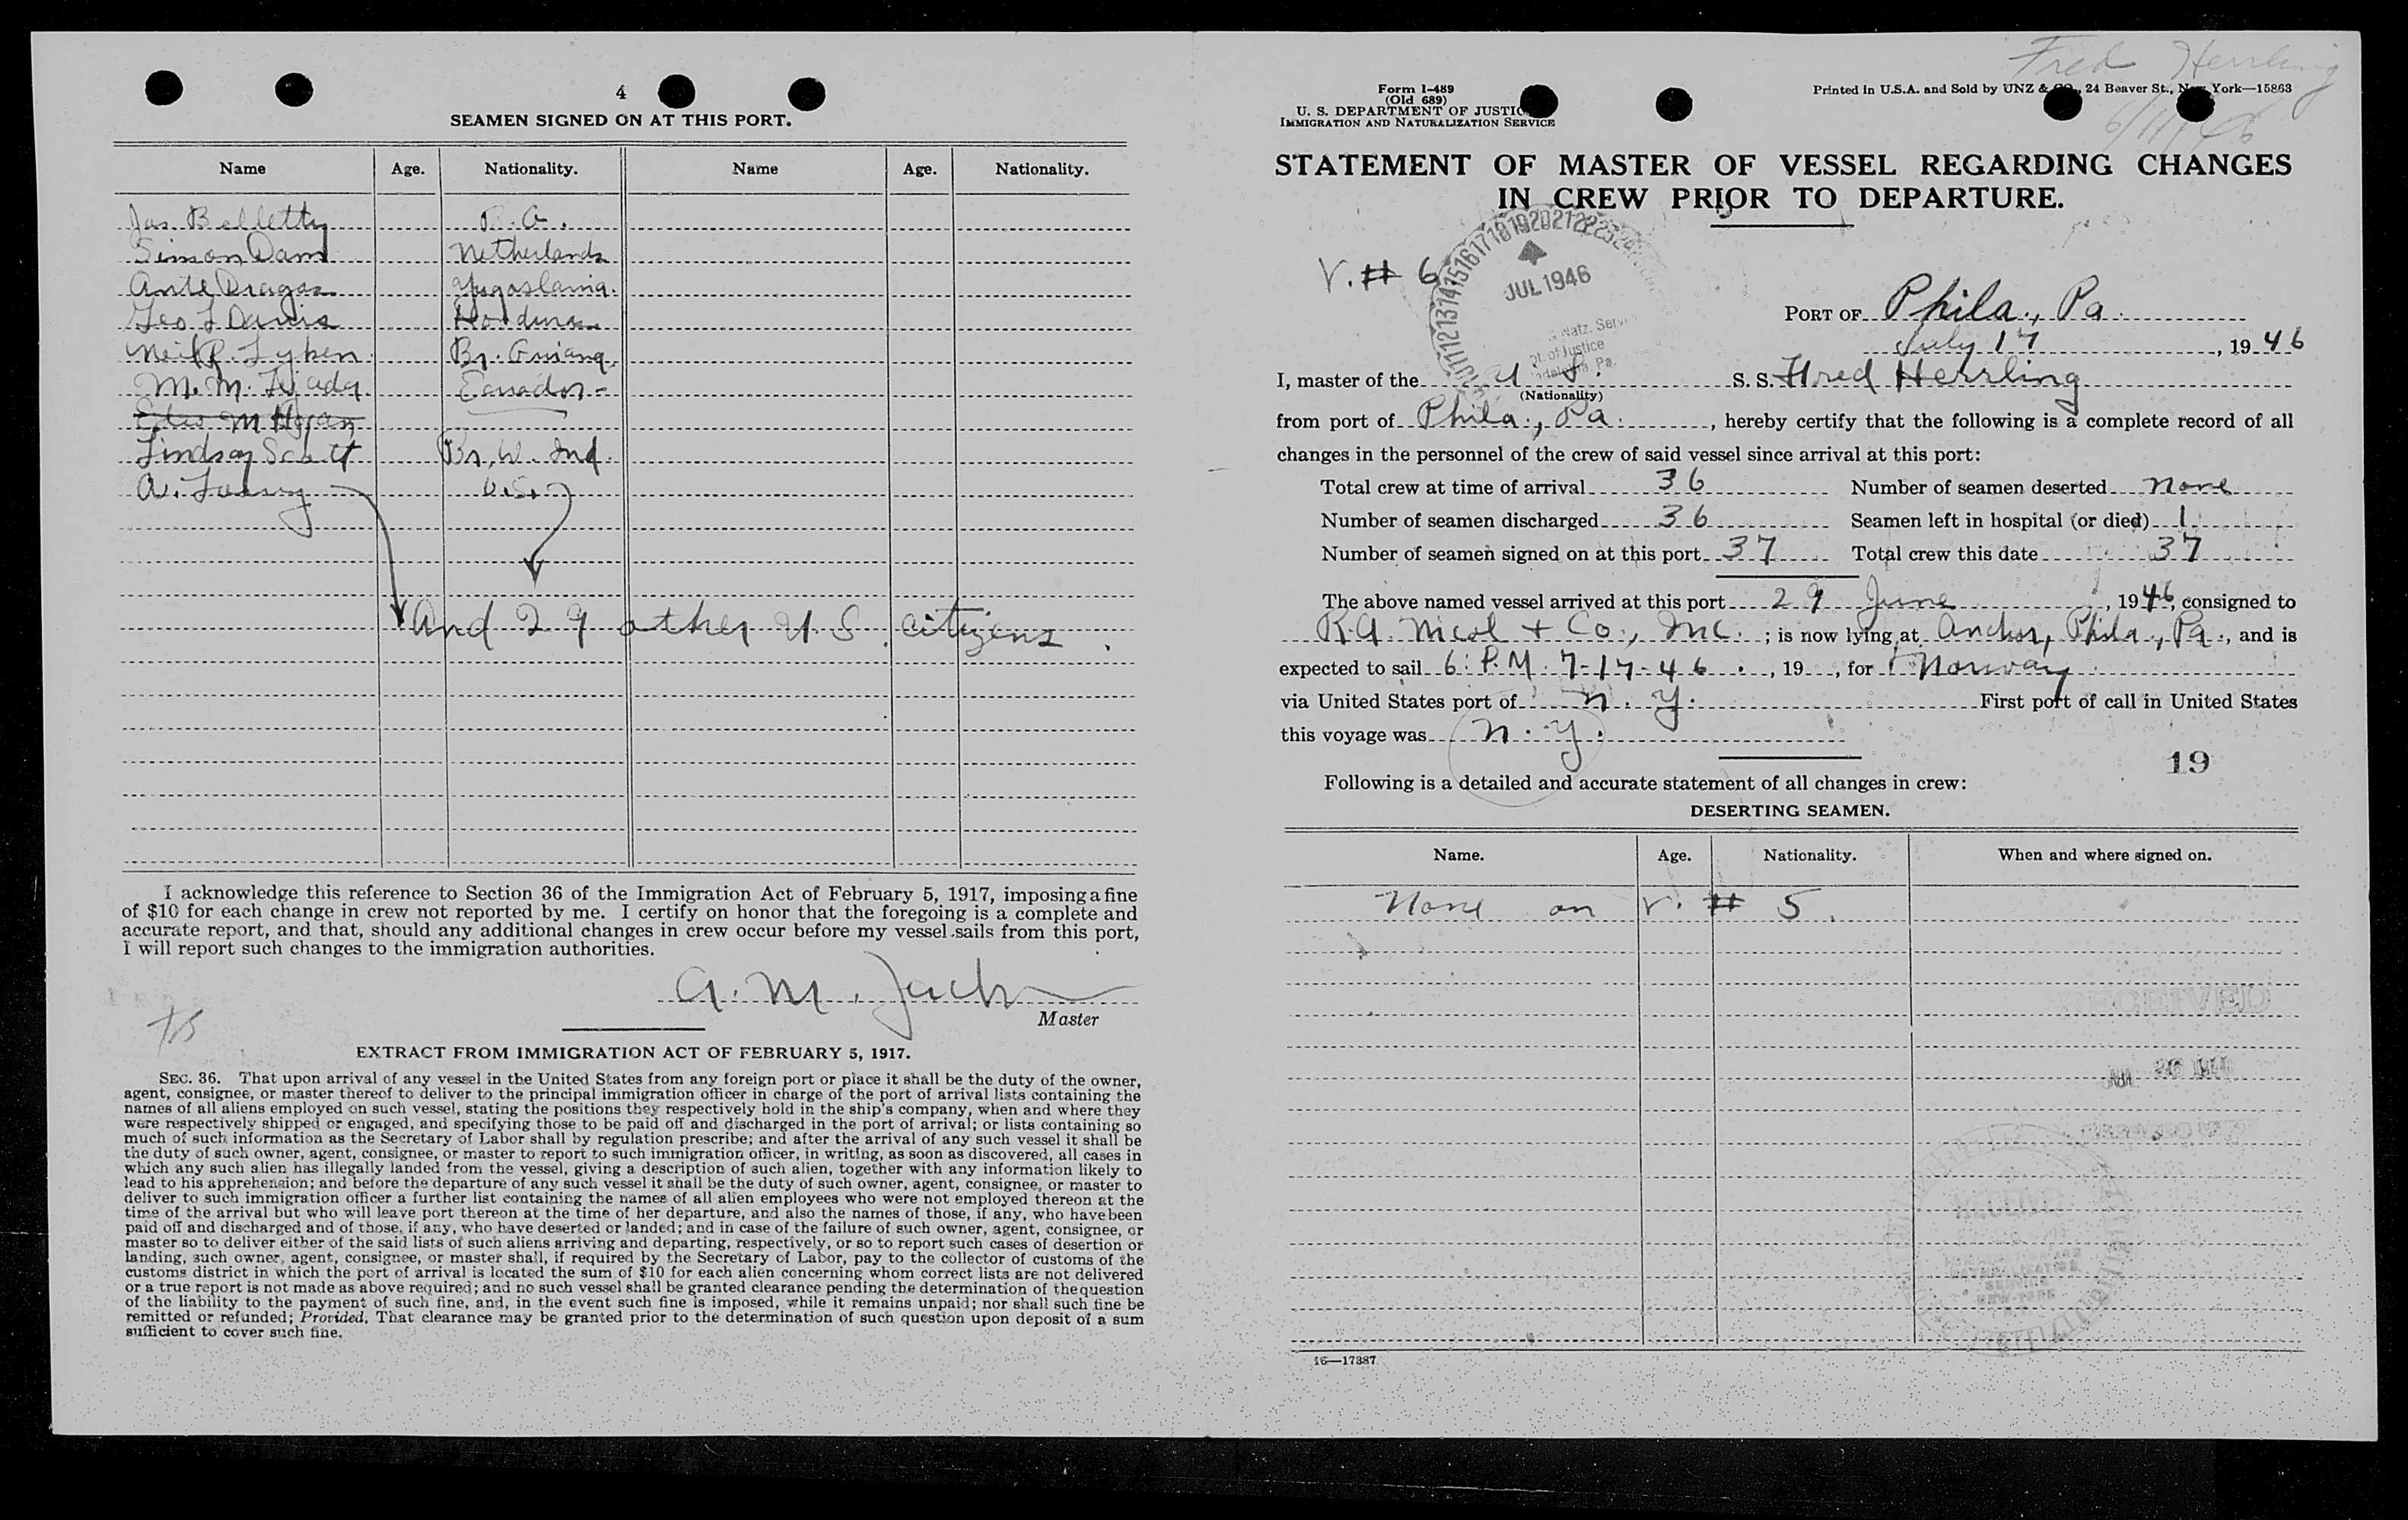 4
SEAMEN SIGNED ON AT THIS PORT.
Name Age. Nationality. Name Age. Nationality.
Jas. Belletty B.G.
Simon Dam Netherlands
Ante Dragas Yugoslavia.
Geo L Davis Honduras
Neil P. Lyken. Br. Guiana.
M. M. Tejada Ecuador -
Lindsay Scott Br. W. Ind.
A. U.S.
And 29 other U.S. citizens.
I acknowledge this reference to Section 36 of the Immigration Act of February 5, 1917, imposing a fine
of $10 for each change in crew not reported by me. I certify on honor that the foregoing is a complete and
accurate report, and that, should any additional changes in crew occur before my vessel sails from this port,
I will report such changes to the immigration authorities.
A. M. Jack
Master
EXTRACT FROM IMMIGRATION ACT OF FEBRUARY 5, 1917.
SEC. 36. That upon arrival of any vessel in the United States from any foreign port or place it shall be the duty of the owner,
agent, consignee, or master thereof to deliver to the principal immigration officer in charge of the port of arrival lists containing the
names of all aliens employed on such vessel, stating the positions they respectively hold in the ship's company, when and where they
were respectively shipped or engaged, and specifying those to be paid off and discharged in the port of arrival; or lists containing so
much of such information as the Secretary of Labor shall by regulation prescribe; and after the arrival of any such vessel it shall be
the duty of such owner, agent, consignee, or master to report to such immigration officer, in writing, as soon as discovered, all cases in
which any such alien has illegally landed from the vessel, giving a description of such alien, together with any information likely to
lead to his apprehension; and before the departure of any such vessel it shall be the duty of such owner, agent, consignee, or master to
deliver to such immigration officer a further list containing the names of all alien employees who were not employed thereon at the
time of the arrival but who will leave port thereon at the time of her departure, and also the names of those, if any, who have been
paid off and discharged and of those, if any, who have deserted or landed; and in case of the failure of such owner, agent, consignee, or
master so to deliver either of the said lists of such aliens arriving and departing, respectively, or so to report such cases of desertion or
landing, such owner, agent, consignee, or master shall, if required by the Secretary of Labor, pay to the collector of customs of the
customs district in which the port of arrival is located the sum of $10 for each alien concerning whom correct lists are not delivered
or a true report is not made as above required; and no such vessel shall be granted clearance pending the determination of the question
of the liability to the payment of such fine, and, in the event such fine is imposed, while it remains unpaid; nor shall such fine be
remitted or refunded; Provided, That clearance may be granted prior to the determination of such question upon deposit of a sum
sufficient to cover such fine.
Fred Herrling
6/11/46
Form I-489
(Old 689)
U. S. DEPARTMENT OF JUSTICE
IMMIGRATION AND NATURALIZATION SERVICE
Printed in U.S.A. and Sold by UNZ & CO., 24 Beaver St., New York—15863
STATEMENT OF MASTER OF VESSEL REGARDING CHANGES
IN CREW PRIOR TO DEPARTURE.
V. # 6
JUL 1946
PORT OF Phila., Pa.
July 17, 1946
I, master of the U. S. S. S. Fred Herrling
(Nationality)
from port of Phila., Pa., hereby certify that the following is a complete record of all
changes in the personnel of the crew of said vessel since arrival at this port:
Total crew at time of arrival 36 Number of seamen deserted none
Number of seamen discharged 36 Seamen left in hospital (or died) 1
Number of seamen signed on at this port 37 Total crew this date 37
The above named vessel arrived at this port 29 June, 1946, consigned to
R.A. Nicol + Co., Inc.; is now lying at Anchor, Phila., Pa., and is
expected to sail 6: P.M. 7-17-46., 19 , for Norway
via United States port of N. Y. First port of call in United States
this voyage was N. Y.
19
Following is a detailed and accurate statement of all changes in crew:
DESERTING SEAMEN.
Name. Age. Nationality. When and where signed on.
None on V. # 5.
RECEIVED
RECEIVED
16—17387